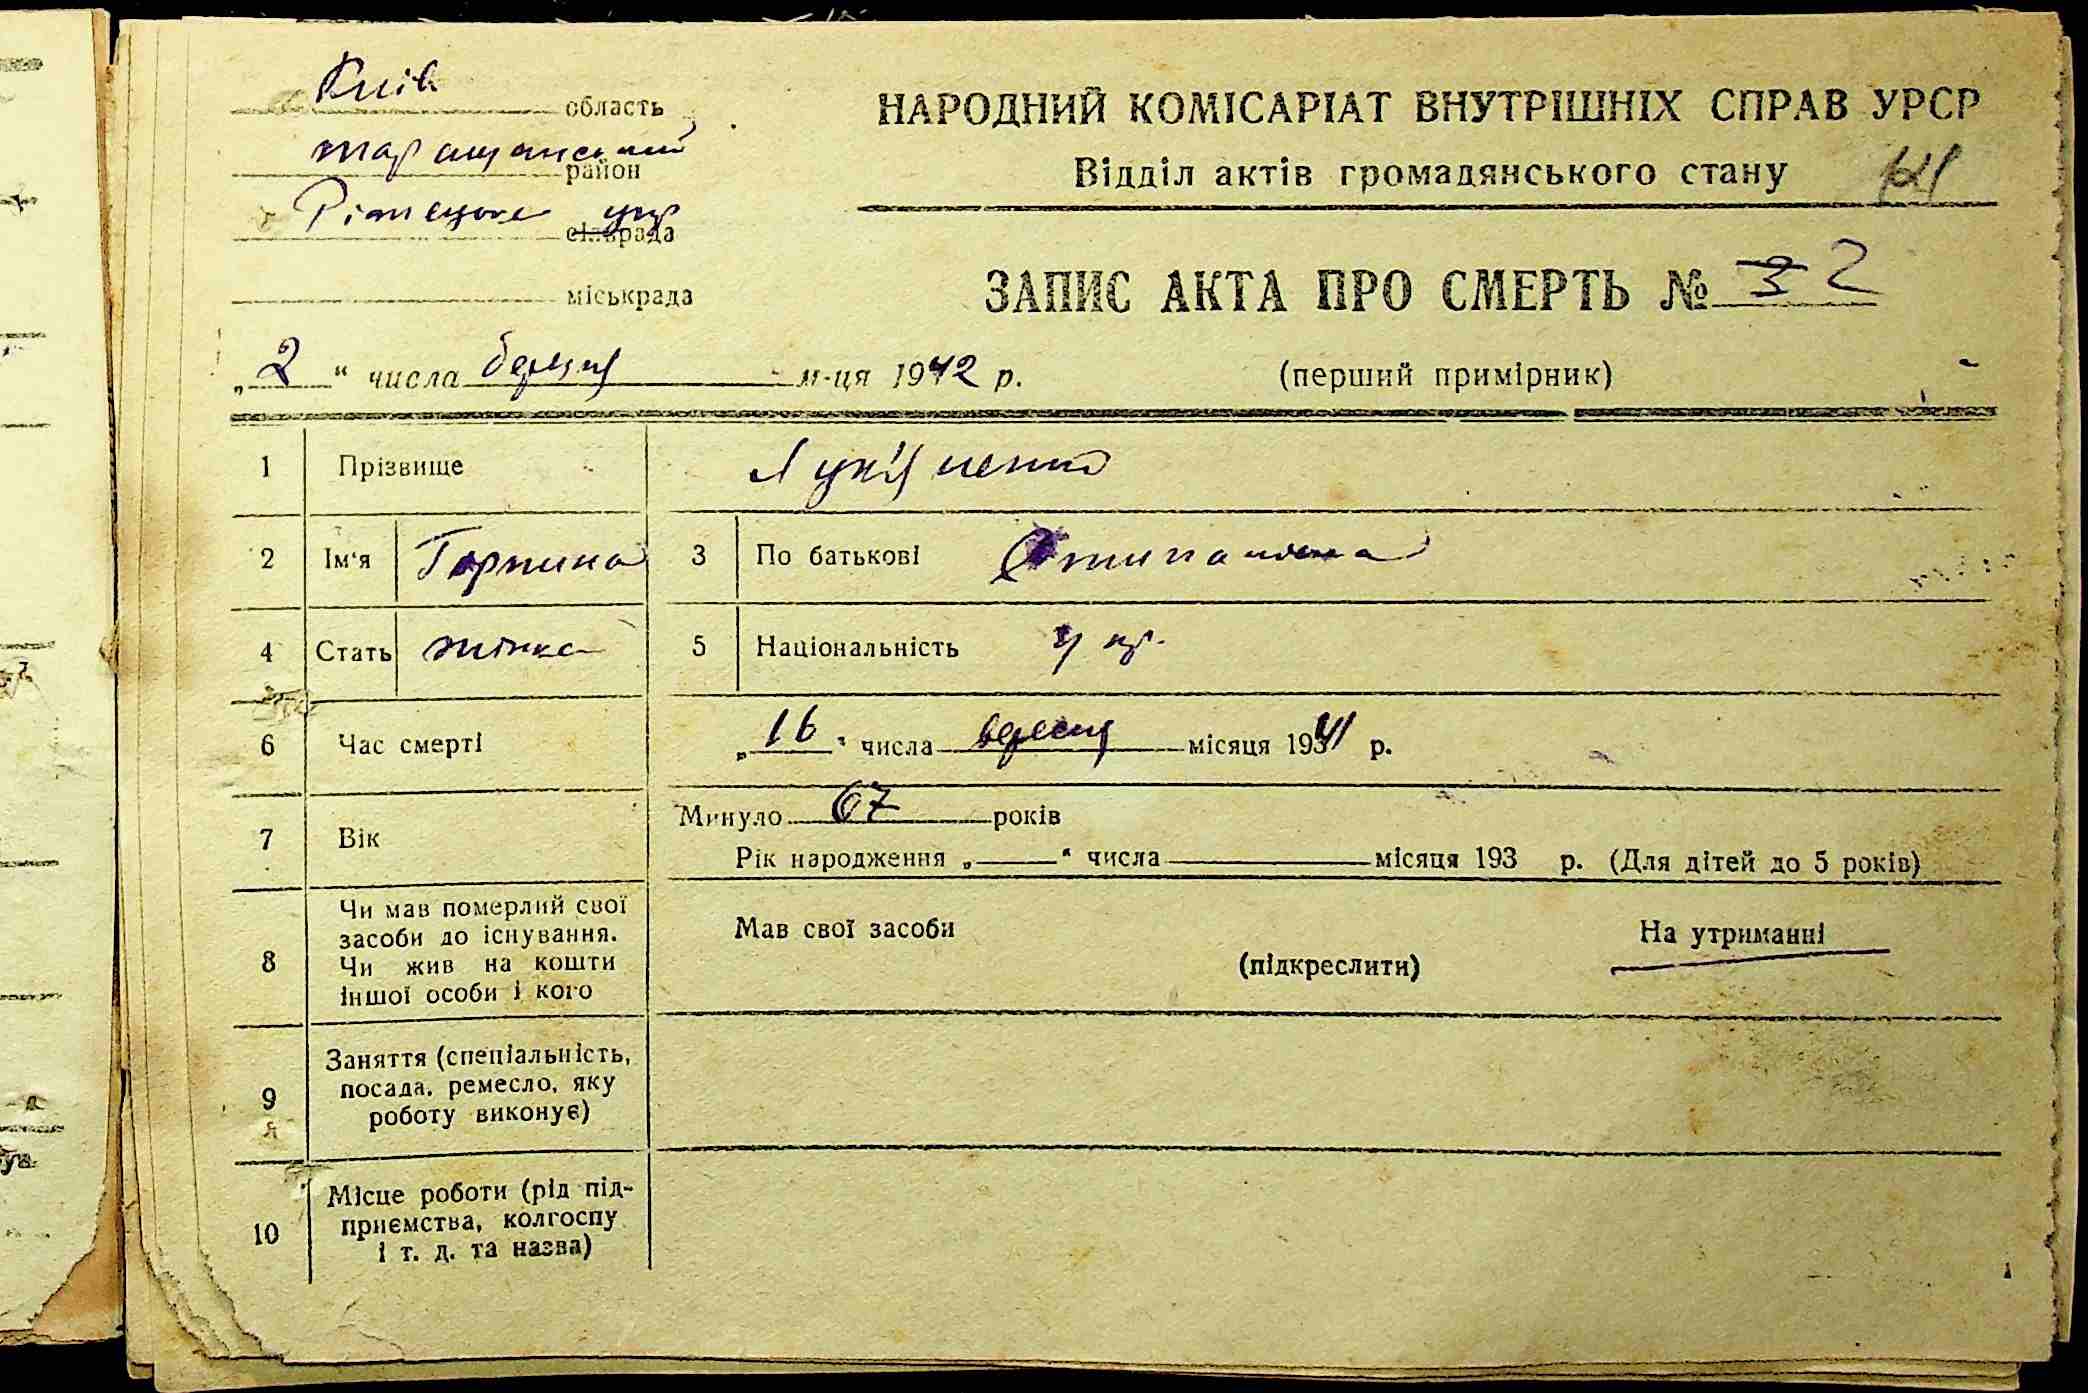 Київ область
таращанський район
упр
сільрада
міськрада
НАРОДНИЙ КОМІСАРІАТ ВНУТРІШНІХ СПРАВ УРСР
Відділ актів громадянського стану
ЗАПИС АКТА ПРО СМЕРТЬ № 3 2
„2“ числа березня м-ця 1942 р.
(перший примірник)
1 Прізвище Лук'яненко
2 Ім'я Горпина 3 По батькові
4 Стать жінка 5 Національність укр.
6 Час смерті „16“ числа вересня місяця 1941 р.
7 Вік Минуло 67 років
Рік народження „ “ числа місяця 193 р. (Для дітей до 5 років)
8 Чи мав померлий свої
засоби до існування.
Чи жив на кошти
іншої особи і кого
Мав свої засоби
(підкреслити)
На утриманні
9 Заняття (спеціальність,
посада, ремесло, яку
роботу виконує)
10 Місце роботи (рід під-
приємства, колгоспу
і т. д. та назва)